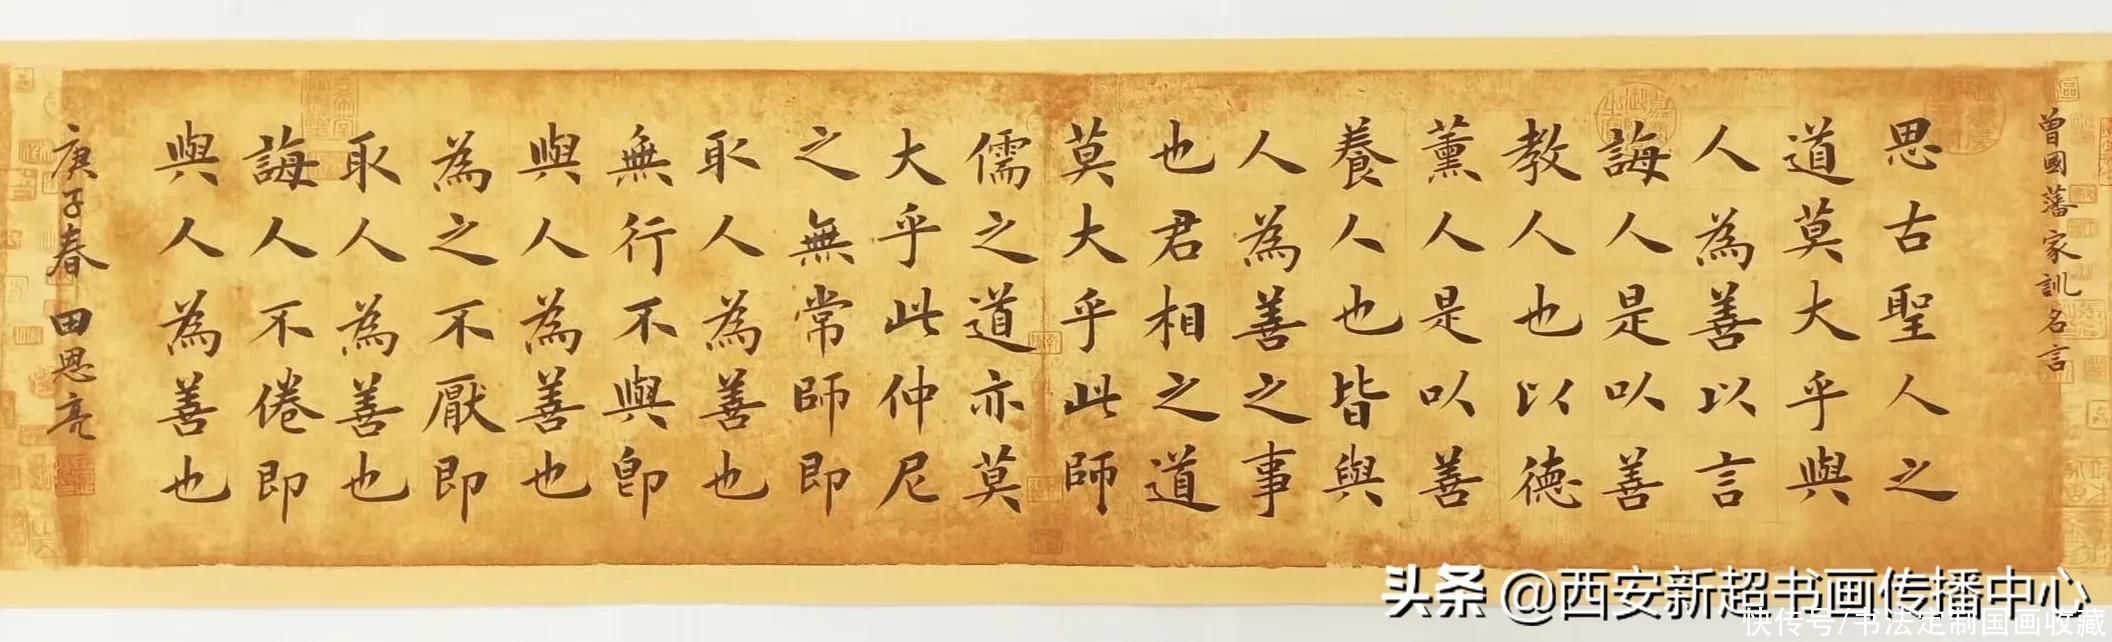 曾國藩家訓名言
思古聖人之
道莫大乎與
人為善以言
誨人是以善
教人也以德
薰人是以善
養人也皆與
人為善之事
也君相之道
莫大乎此師
儒之道亦莫
大乎此仲尼
之無常師即
取人為善也
無行不與即
與人為善也
為之不厭即
取人為善也
誨人不倦即
與人為善也
庚子春田恩亮
头条 @西安新超书画传播中心
快传号/书法定制国画收藏